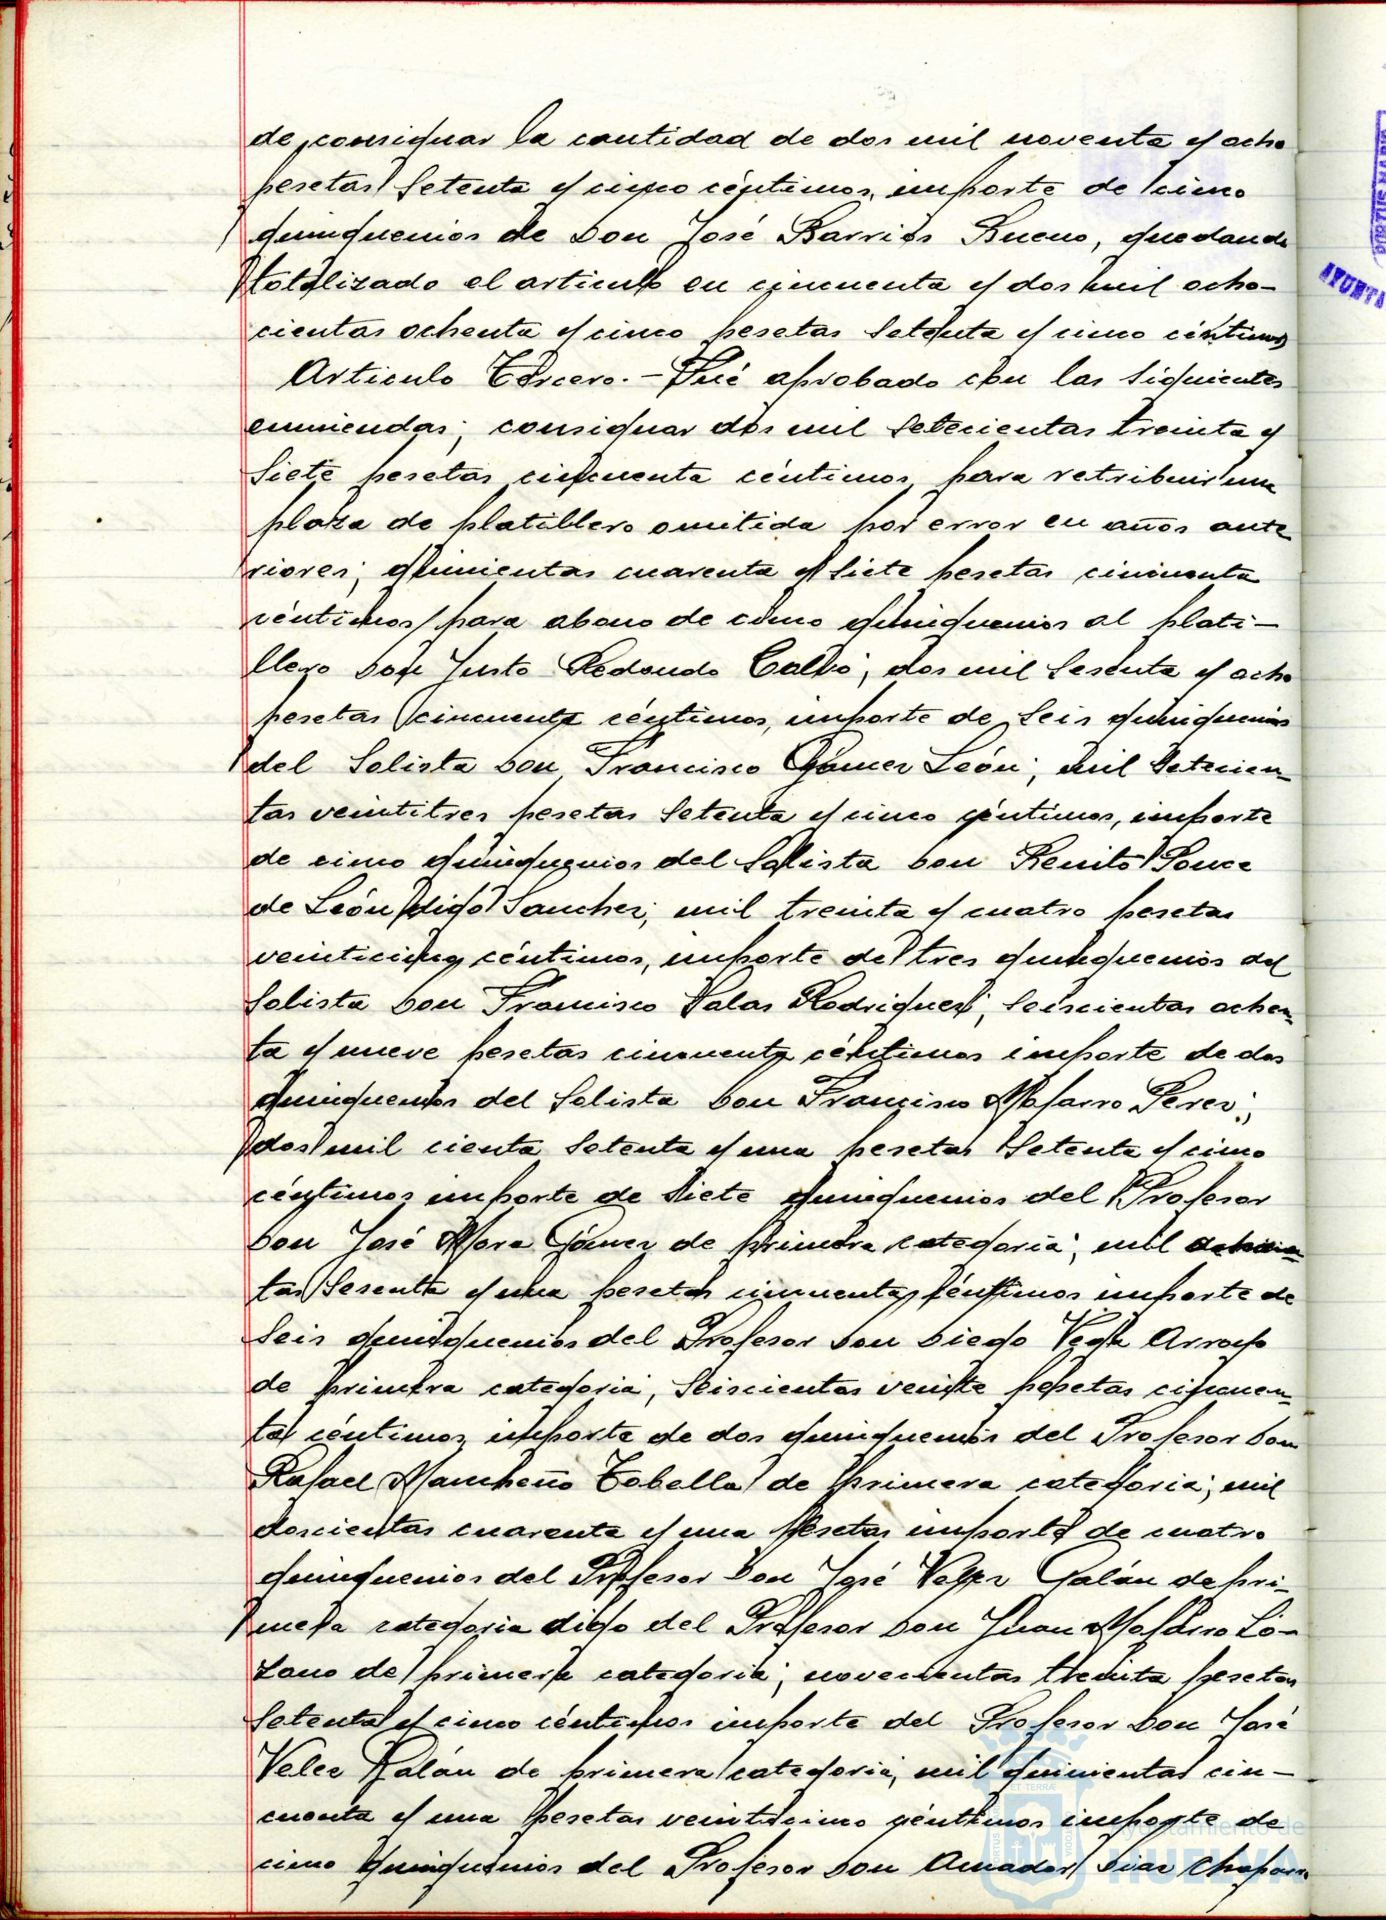 de consignar la cantidad de dos mil noventa y ocho
pesetas setenta y cinco céntimos, importe de cinco
quinquenios de Don José Barrios Bueno, quedando
totalizado el articulo en cincuenta y dos mil ocho-
cientas ochenta y cinco pesetas setenta y cinco céntimos
Articulo Tercero.- Fué aprobado con las siguientes
enmiendas; consignar dos mil setecientas treinta y
siete pesetas cincuenta céntimos, para retribuir una
plaza de platillero omitida por error en años ante
riores; quinientas cuarenta y siete pesetas cincuenta
céntimos para abono de cinco quinquenios al plati-
llero Don Justo Redondo Calvo; dos mil sesenta y ocho
pesetas cincuenta céntimos, importe de seis quinquenios
del Solista Don Francisco Gómez León; mil setecien-
tas veintitres pesetas setenta y cinco céntimos, importe
de cinco quinquenios del Solista Don Benito Ponce
de León digo Sanchez; mil treinta y cuatro pesetas
veinticinco céntimos, importe de tres quinquenios del
Solista Don Francisco Salas Rodriguez; seiscientas ochen-
ta y nueve pesetas cincuenta céntimos importe de dos
quinquenios del Solista Don Francisco Mofarro Perez;
dos mil cienta setenta y una pesetas setenta y cinco
céntimos importe de siete quinquenios del Profesor
Don José Mora Gómez de primera categoria; mil
tas sesenta y una pesetas cincuenta céntimos importe de
seis quinquenios del Profesor Don Diego Vega Arroyo
de primera categoria; seiscientas veinte pesetas cincuen-
ta céntimos, importe de dos quinquenios del Profesor Don
Rafael Mancheño Tobella de primera categoria; mil
doscientas cuarenta y una pesetas importe de cuatro
quinquenios del Profesor Don José Velez Galán de pri-
mera categoria digo del Profesor Don Juan Mofarro Lo-
zano de primera categoria; novecientas treinta pesetas
setenta y cinco céntimos importe del Profesor Don José
Velez Galán de primera categoria; mil quinientas cin-
cuenta y una pesetas veinticinco céntimos importe de
cinco quinquenios del Profesor Don Amador Diaz Chaparro
PORTUS MARIS
AYUNTA
Ayuntamiento de
HUELVA